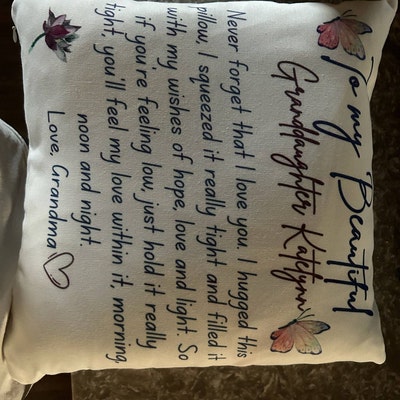 To my Beautiful
Granddaughter Katelynn
Never forget that I love you. I hugged this
pillow, I squeezed it really tight and filled it
with my wishes of hope, love and light. So
if you're feeling low, just hold it really
tight, you'll feel my love within it, morning,
noon and night.
Love, Grandma